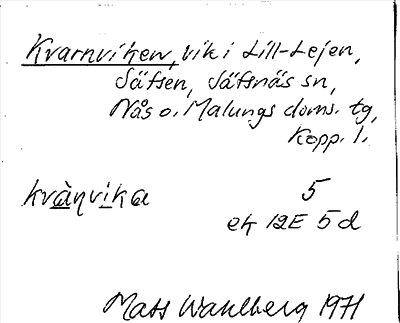 Kvarnviken, vik i Lill-Lejen,
Säfsen, Säfsnäs sn,
Nås o. Malungs doms. tg,
Kopp. l.
kvàṇvika 5
ek 12E 5d
Mats Wahlberg 1971